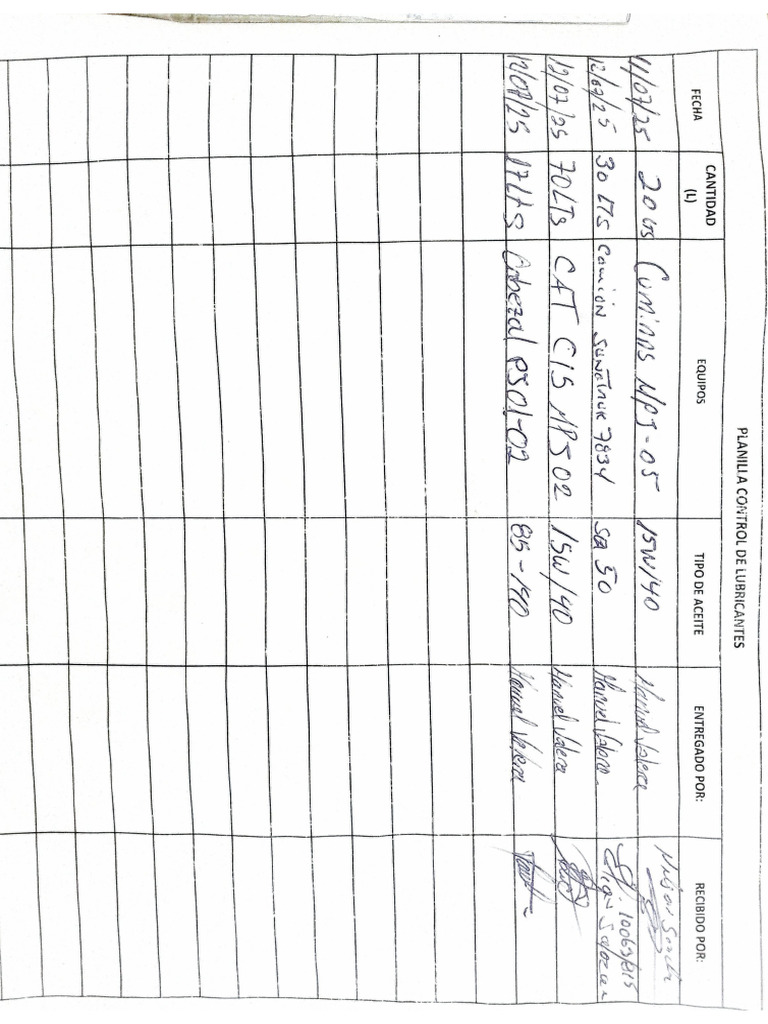 PLANILLA CONTROL DE LUBRICANTES
FECHA CANTIDAD (L) EQUIPOS TIPO DE ACEITE ENTREGADO POR: RECIBIDO POR:
11/07/25 20 Lts Cuminns MPJ-05 15W/40 Manuel Valera
12/07/25 30 LTS Camion 7834 50 Manuel Valera
12/07/25 70LTS CAT C15 MPJ02 15W/40 Manuel Valera
12/07/25 17LTS Cabezal PJ01-02 85-140 Manuel Valera